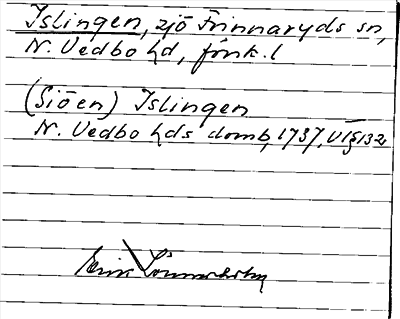 Islingen, sjö Frinnaryds sn,
N. Vedbo hd, Jönk. l
(Siöen) Islingen
N. Vedbo hds domb, 1737, VI § 132